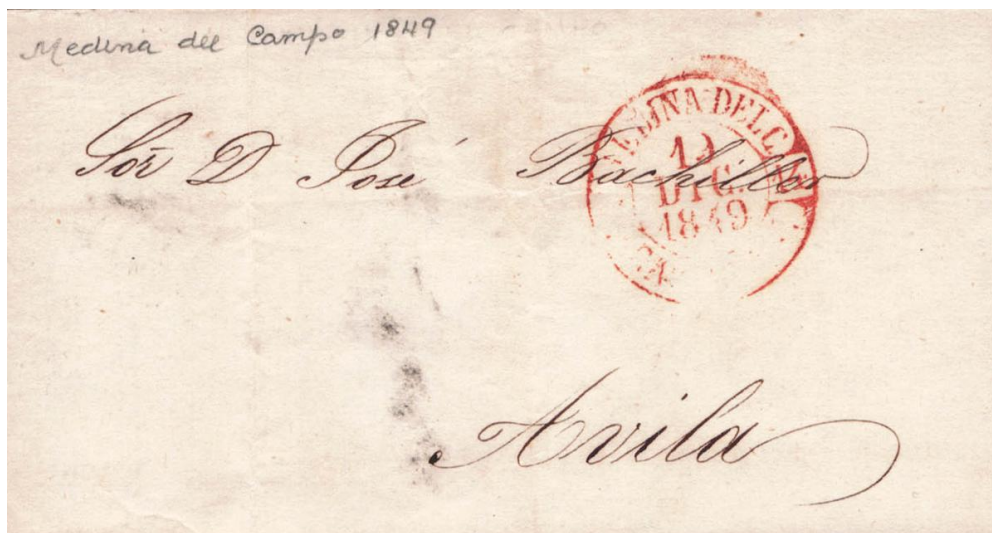 Medina del Campo 1849
Sor D José Bachiller
MEDINA DEL CAMPO
DIC.
1849
Avila